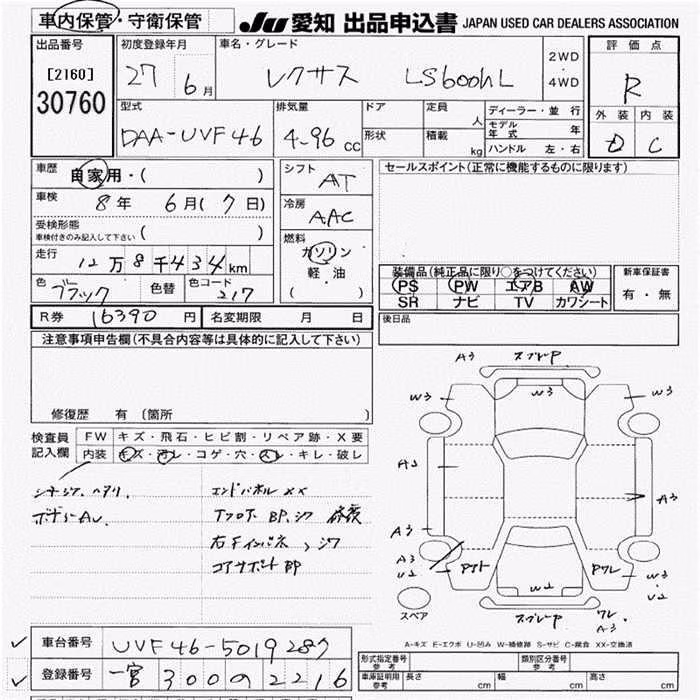 車内保管・守衛保管
JU 愛知 出品申込書 JAPAN USED CAR DEALERS ASSOCIATION
出品番号
[2160]
30760
初度登録年月
27 6月
車名・グレード
レクサス LS600hL
2WD
・
4WD
評価点
R
外装 内装
D C
型式
DAA-UVF46
排気量
4.96 cc
ドア
形状
定員 人
積載 kg
ディーラー・並行
モデル年式 年
ハンドル 左・右
車歴
自家用・( )
車検
8年 6月(7日)
受検形態
車検付きのみ記入して下さい ( )
走行
12万8千434km
色
ブラック
色替
色コード
217
シフト
AT
冷房
AAC
燃料
ガソリン
軽・油
( )
セールスポイント(正常に機能するものに限ります)
装備品(純正品に限り○をつけてください)
PS PW エアB AW
SR ナビ TV カワシート
新車保証書
有・無
後日品
R券 16390円 名変期限 月 日
注意事項申告欄(不具合内容等は具体的に記入して下さい)
修復歴 有 〔箇所 〕
検査員
記入欄
FW キズ・飛石・ヒビ割・リペア跡・X要
内装 キズ・汚レ・コゲ・穴・スレ・キレ・破レ
エンドパネル XX
右
コアサポート BP
A3 スプレP
W3 W3 W3
A2
A3 A3
A3
U2 Pワレ W2 Pワレ W3
U2
スペア
スプレーP ワレ
A-3
A-キズ E-エクボ U-凹み W-補修跡 S-サビ C-腐食 XX-交換済
車台番号 UVF46-5019287
登録番号 一宮 300 の 2216
形式指定番号
参考
類別区分番号
参考
車庫証明用
参考
長さ cm 幅 cm 高さ cm